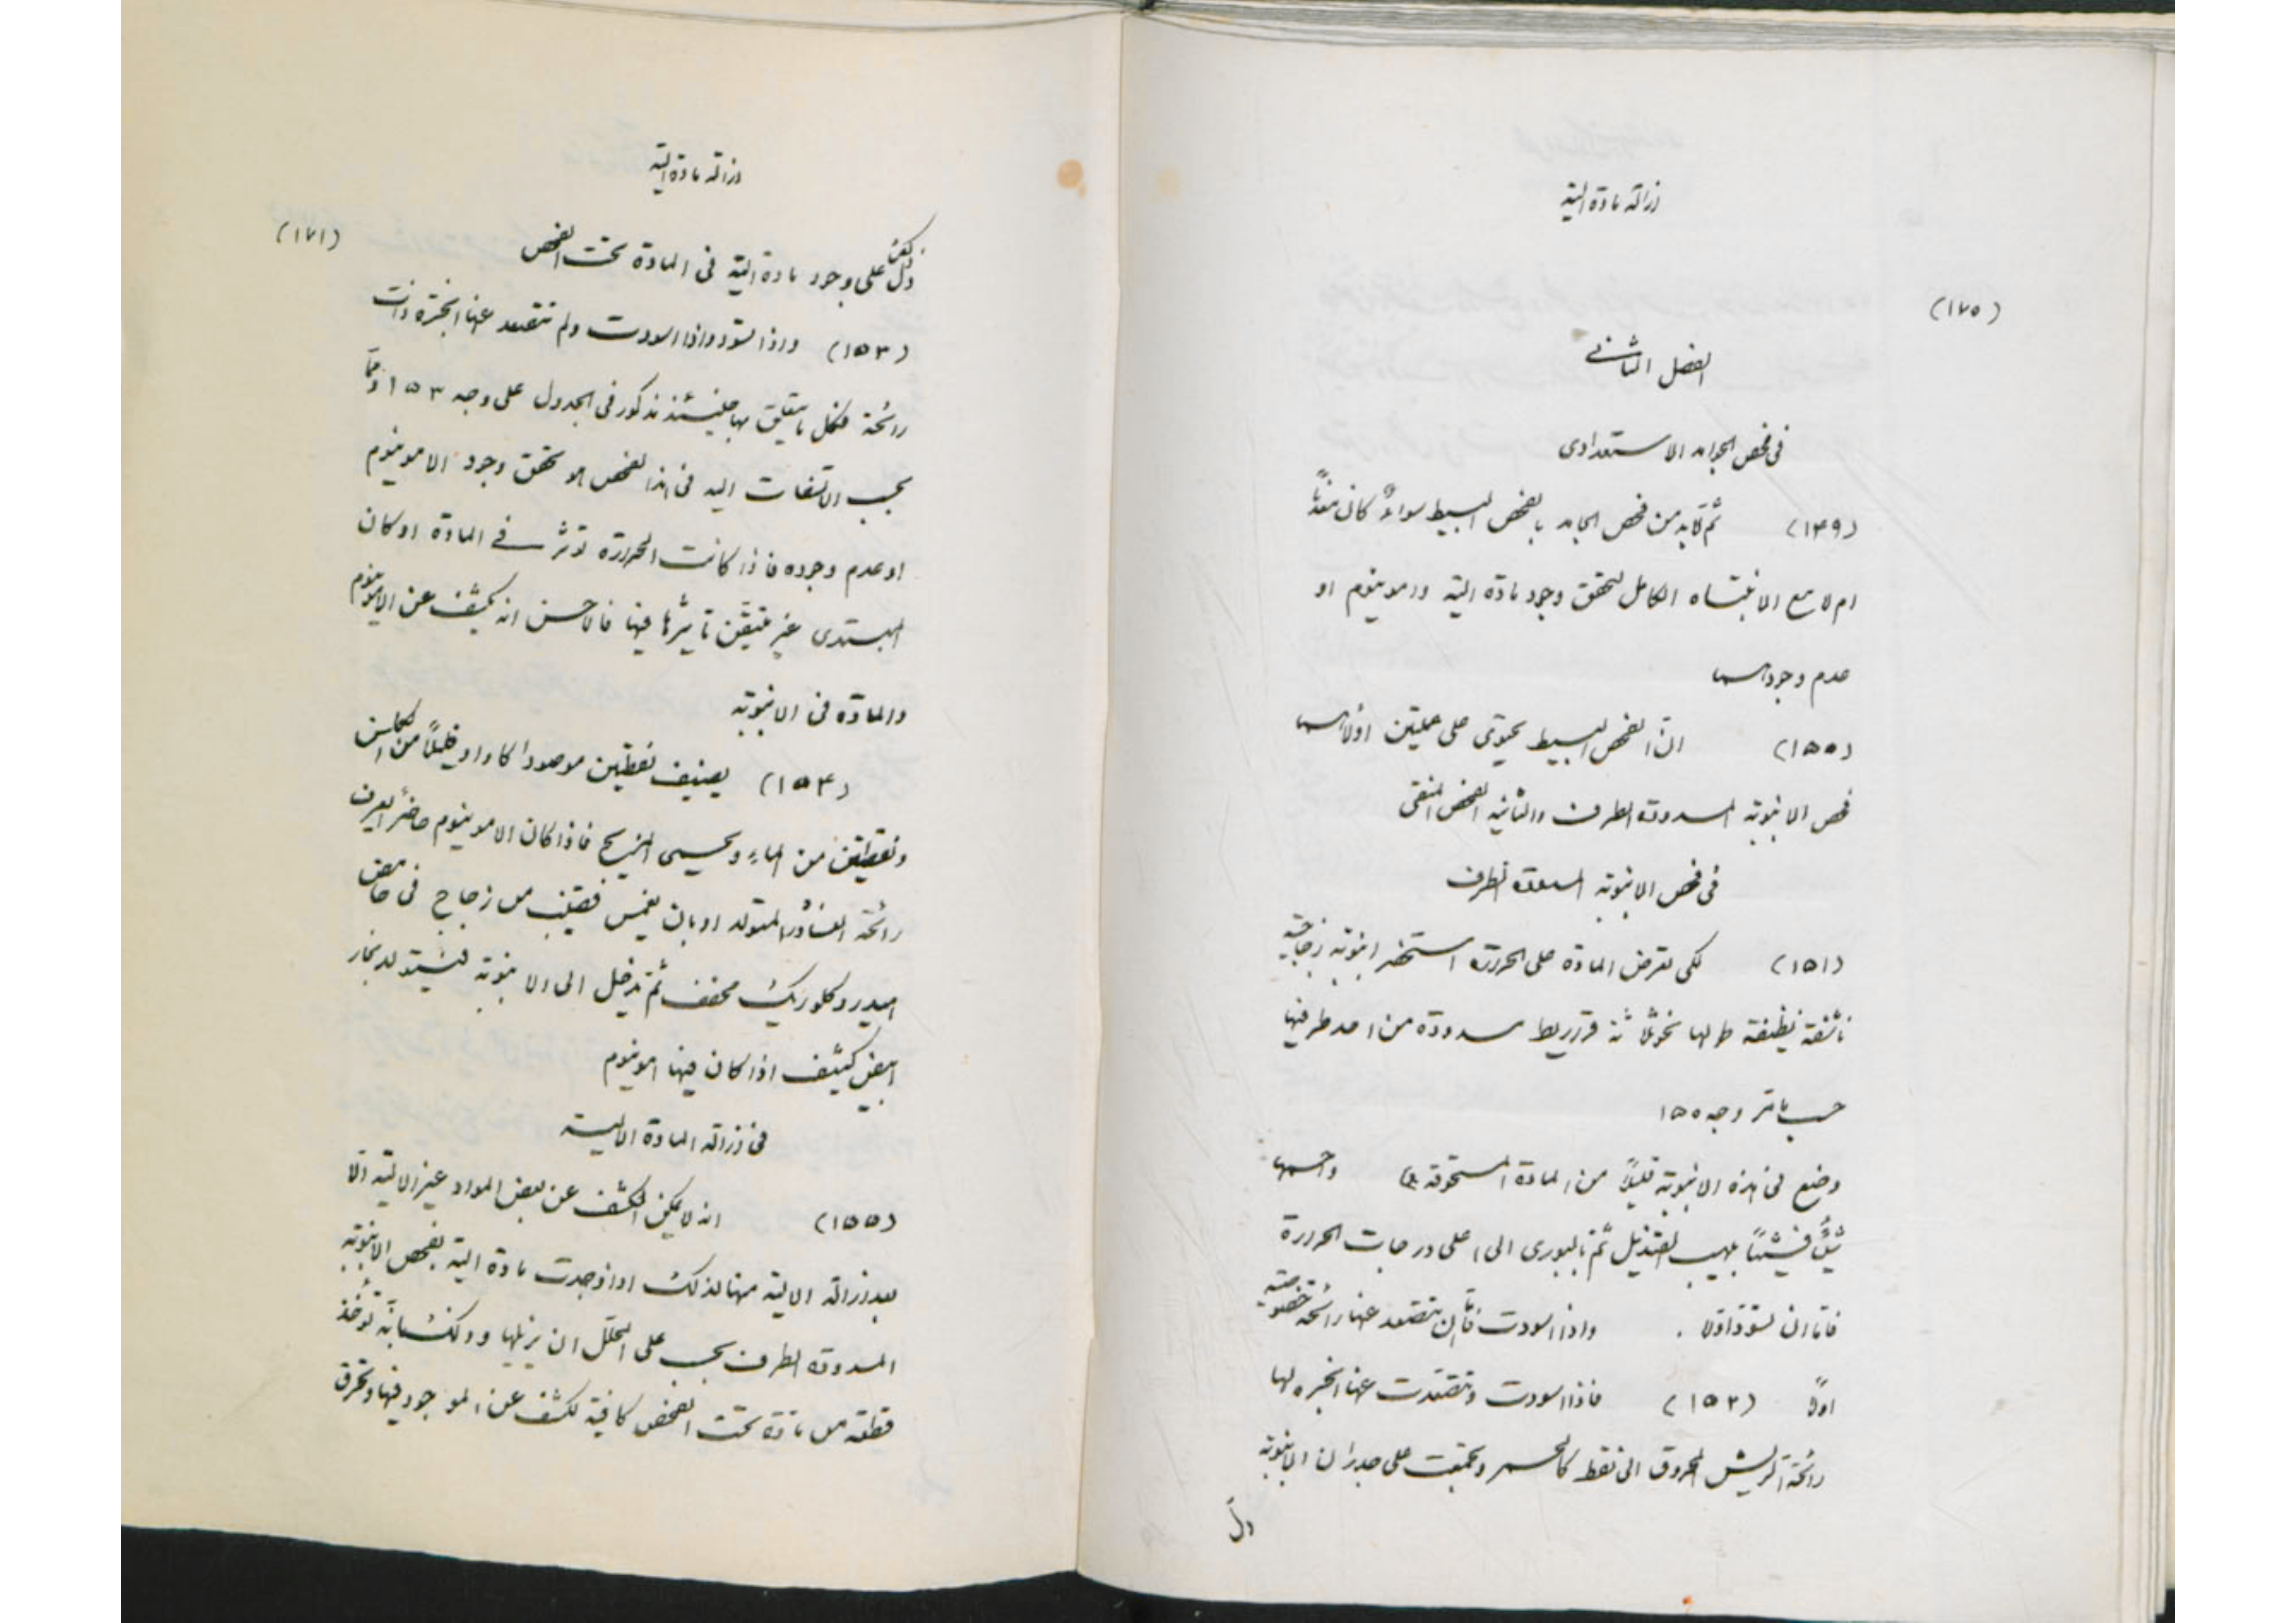 ازالة مادة الية
(١٧٥)
الفصل الثانی
فی فحص الجوامد الاستعدادی
(١۴٩) ثم لابد من فحص الجامد بالفحص البسيط سواءٌ كان معدنًا
ام لا مع الانتباه الكامل لتحقق وجود مادة الية وامونيوم او
عدم وجودهما
(١٥٥) ان الفحص البسيط يحتوی علی عمليتين اولاهما
فحص الانبوبة المسدودة الطرف والثانية الفحص المنقی
فی فحص الانبوبة المسدودة الطرف
(١٥١) لكی تعرض المادة علی الحرارة استحضر انبوبة زجاجية
ناشفة نظيفة طولها نحو ثلاثة قراريط مسدودة من احد طرفيها
حسب مامر وجه ١٥٥
وضع فی هذه الانبوبة قليلاً من المادة المسحوقة واحمها
شيئًا فشيئًا بلهيب القنديل ثم بالبوری الی اعلی درجات الحرارة
فاما ان تسودّ اولا . واذا اسودت فاما ان تتصعد عنها رائحة خصوصية
اولا (١٥٢) فاذا اسودت وتصعدت عنها ابخرة لها
رائحة الريش المحروق الی نقط كالخمر وتجمعت علی جدران الانبوبة
دلّ
ازالة مادة الية
(١٧١)
دلّ ذلك علی وجود مادة الية فی المادة تحت الفحص
(١٥٣) واذا تسود واذا اسودت ولم تتصعد عنها ابخرة ذات
رائحة فكل ما يتعلق بها حينئذ مذكور فی الجدول علی وجه ١٥٣ ومما
يجب الالتفات اليه فی هذا الفحص هو تحقق وجود الامونيوم
او عدم وجوده فاذا كانت الحرارة تؤثر فی المادة او كان
المبتدی غير متيقن تاثيرها فيها فالاحسن ان يكشف عن الامونيوم
والمادة فی الانبوبة
(١٥۴) يضيف نقطتين موصودا كاوا او قليلاً من الكلس
ونقطتين من الماء ويحمی المزيج فاذا كان الامونيوم حاضرًا يعرف
رائحة النشادر المتولد او بان يغمس قضيب من زجاج فی حامض
هيدروكلوريك مخفف ثم تدخل الی الانبوبة فيتولد بخار
ابيض كثيف اذا كان فيها امونيوم
فی ازالة المادة الالية
(١٥٥) انه لا يمكن الكشف عن بعض المواد غير الالية الا
بعد ازالة الالية منها لذلك اذا وجدت مادة الية بفحص الانبوبة
المسدودة الطرف يجب علی المحلل ان يزيلها وذلك بانه تؤخذ
قطعة من مادة تحت الفحص كافية لكشف عن الموجود فيها وتحرق